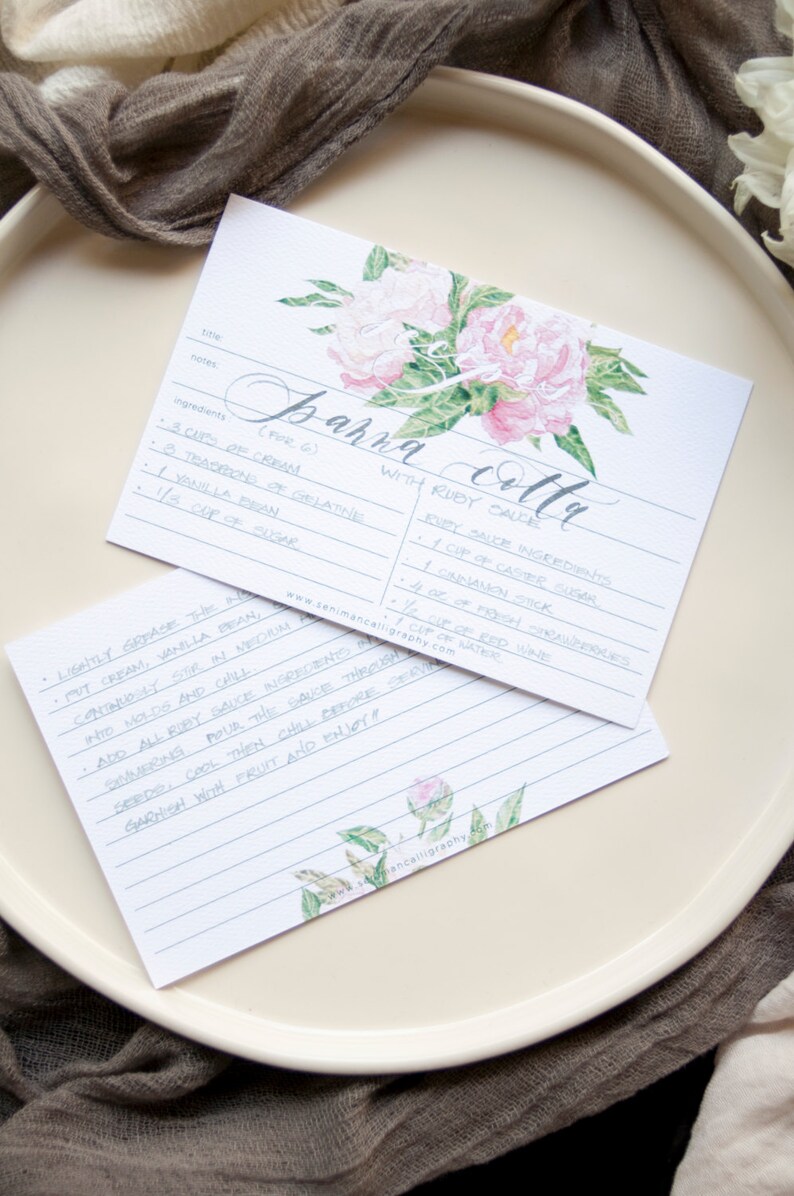 recipe
title:
panna cotta
notes:
(FOR 6)
WITH RUBY SAUCE
ingredients:
• 3 CUPS OF CREAM
• 3 TEASPOONS OF GELATINE
• 1 VANILLA BEAN
• 1/3 CUP OF SUGAR
RUBY SAUCE INGREDIENTS
• 1 CUP OF CASTER SUGAR
• 1 CINNAMON STICK
• 4 OZ OF FRESH STRAWBERRIES
• 1/2 CUP OF RED WINE
• 1 CUP OF WATER
www.senimancalligraphy.com
• LIGHTLY GREASE THE
• PUT CREAM, VANILLA BEAN,
CONTINUOSLY STIR IN MEDIUM
INTO MOLDS AND CHILL
• ADD ALL RUBY SAUCE INGREDIENTS
SIMMERING. POUR THE SAUCE THROUGH
SEEDS, COOL THEN CHILL BEFORE
GARNISH WITH FRUIT AND ENJOY!!
www.senimancalligraphy.com